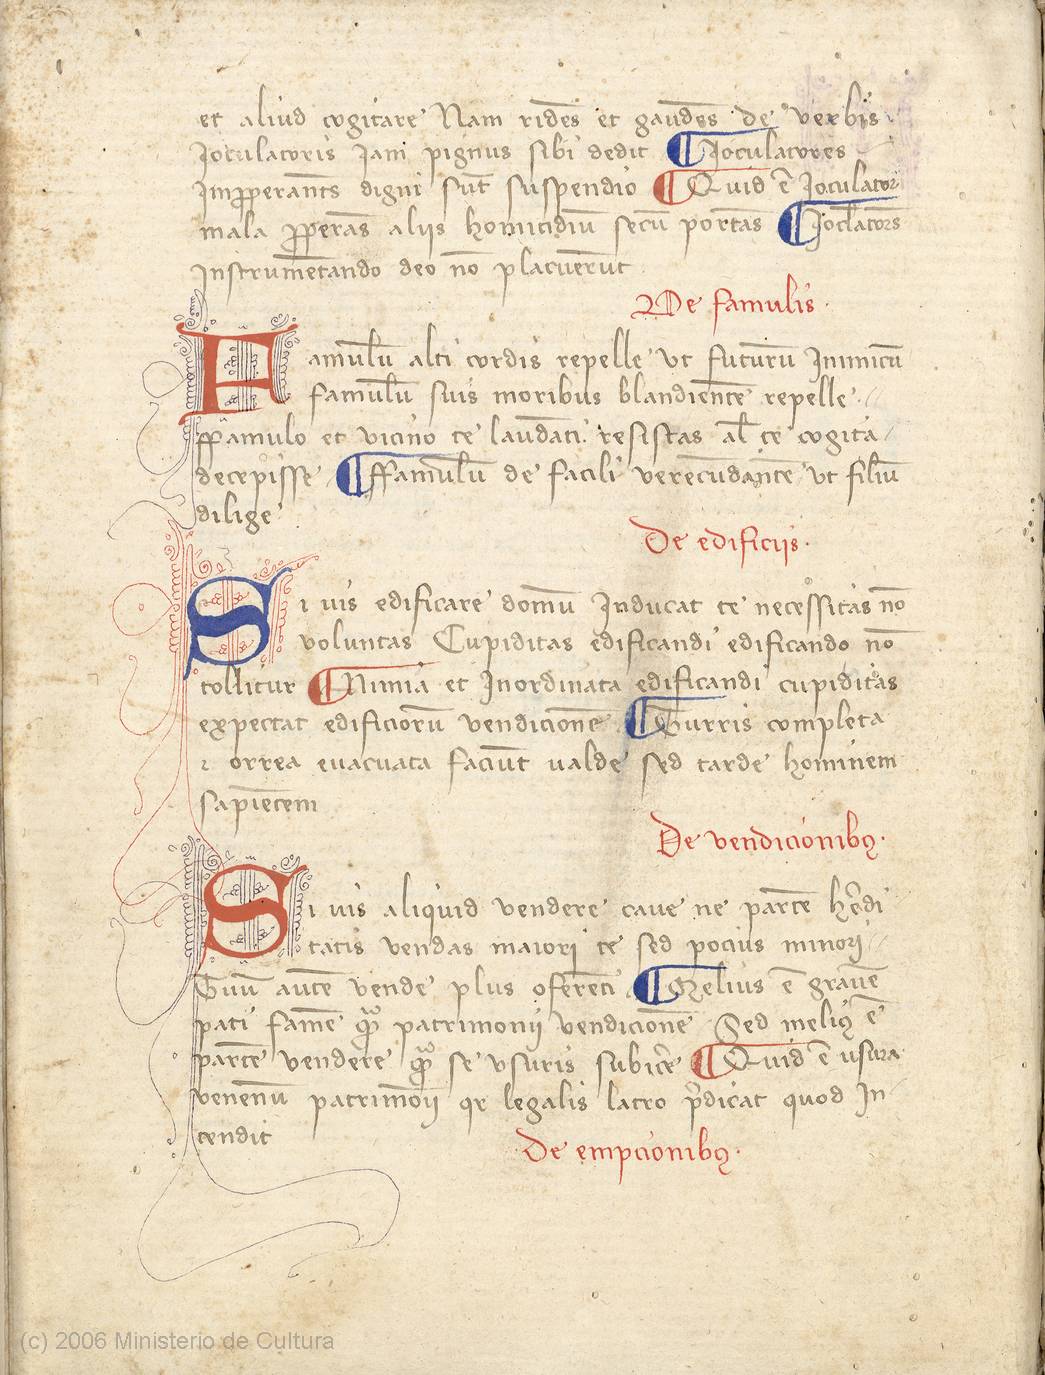 et aliud cogitare Nam ridēs et gaudēs de verbis
Joculatoris Jam pignus sibi dedit Joculatores
Imꝑperantes digni sūt suspendio Quid ē Joculator
mala ꝓperās aliis homicidiū secū portās Jocl̄atores
Instrumētando deo nō placuerūt
De famulis
Famul̄ū alti cordis repelle vt futurū Inimicū
famul̄ū suis moribus blandientē repelle
ffamulo et vicino te laudāti resistas al̄ te cogita
decepisse ffamul̄ū de facili verecūdantē vt filiū
dilige
De edificiis
Si uis edificare domū Inducat te necessitas nō
voluntas Cupiditas edificandi edificando nō
tollitur Nimia et Inordinata edificandi cupiditas
expectat edificiorū vendicionē Turris completa
⁊ orrea evacuata faciūt valde sed tarde hominem
sapiētem
De vendicionibꝯ
Si uis aliquid vendere caue ne partē h̄edi
tatis vendas maiori te sed pocius minorj
Tuū autē vende plus oferēti Melius ē grauē
pati famē qͣꝫ patrimonij vendicionē Sed meliꝯ ē
partē vendere qͣꝫ se vsuris subic̄e Quid ē usura
venenū patrimōij qr legalis latro p̄dicat quod In
tendit
De empcionibꝯ
(c) 2006 Ministerio de Cultura